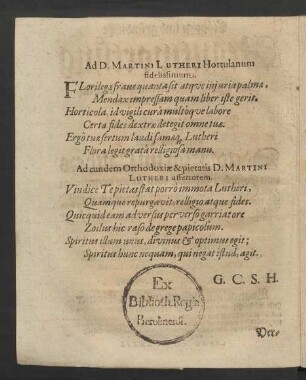 Ad D. MARTINI LUTHERI Hortulanum
fidelissimum.
FLorilega fraus quanta sit atqve injuria palma,
Mendax impressam quam liber iste gerit.
Horticola id vigili cura multoque labore
Certa fides dextræ detegit omne tuæ.
Ergò tua sertum laudi famæq; Lutheri
Flora legit gratâ religiosa manu.
Ad eundem Orthodoxiæ & pietatis D. MARTINI
LUTHERI assertorem.
Vindice Te pietas stat porrò immota Lutheri,
Quamque repurgavit relligio atque fides.
Quicquid eam adversus perverso garriat ore
Zoilus hic raso de grege papicolum.
Spiritus illum unus, divinus & optimus egit;
Spiritus hunc nequam, qui negat istud, agit.
G. C. S. H.
Ex
Biblioth. Regia
Berolinensi.